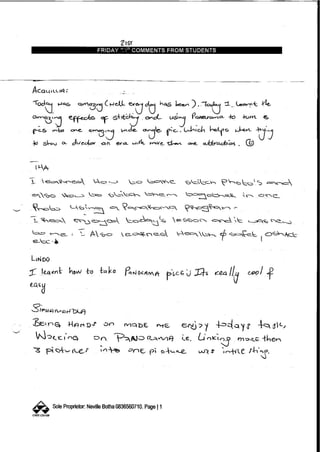 21ST
FRIDAY COMMENTS FROM STUDENTS
Acquilla:
Today was amazing (well everyday has been). Today I. Learnt the
amazing effects of stitching and using Panorama to turn 6
pics into one amazing wide angle pic. Which helps when trying
to show a director an area with more than one attraction.
I learned How to some stitch Photo's and
also How to stitch them together in one
Photo Using a Panorama Photography.
I Real enjoyed today's lesson and it was new
too me. I Also learned Health & Safety, OSHACT
etc.
LINDO
I learnt how to take PANORAMA pics :) Its really cool &
easy
Being HANDS on made me enjoy todays task,
Working on PANORAMA i.e. Linking more then
3 picture into one picture was intre thing.
Sole Proprietor: Neville Botha 0836560710. Page | 1